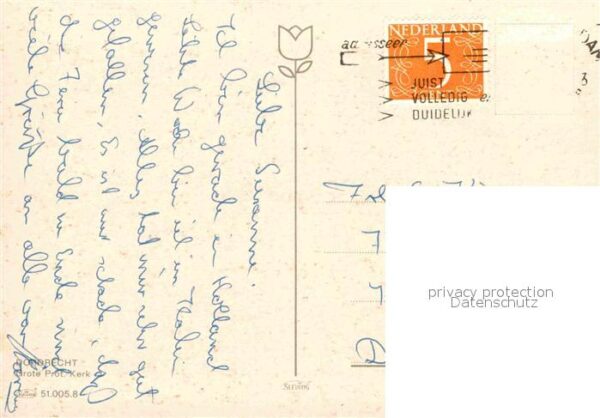 Liebe Susanne!
Ich bin gerade in Holland
Letzte Woche bin ich in Italien
gewesen. Alles hat mir sehr gut
gefallen. Es ist nur schade, daß
die Ferien bald zu Ende sind
Viele Grüße an alle von
DORDRECHT
Grote Prot. Kerk
51.005.8
NEDERLAND
5
adresseer
JUIST
VOLLEDIG en
DUIDELIJK
privacy protection
Datenschutz